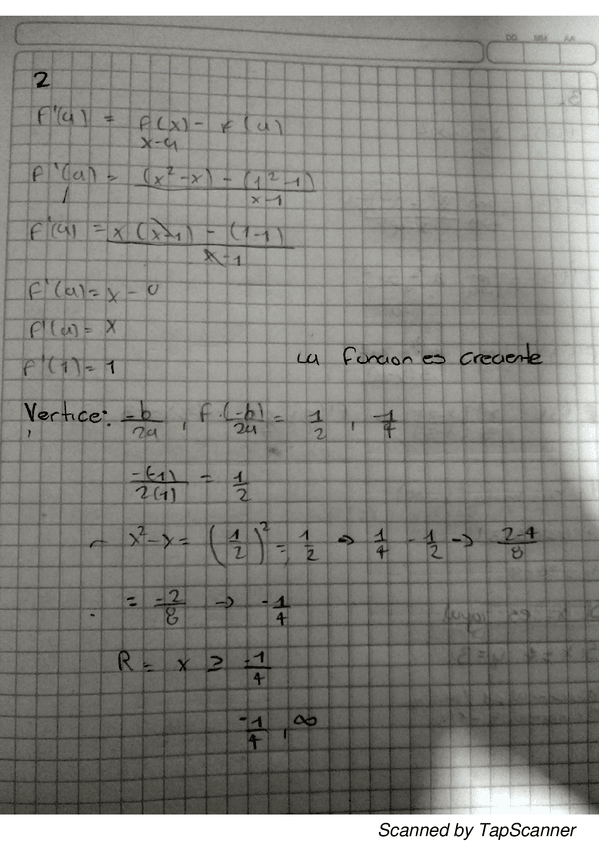 DD MM AA
2
F'(a) = F(x) - F(a)
x-a
F'(a) = (x²-x) - (1²-1)
x-1
F'(a) = x(x-1) - (1-1)
x-1
F'(a) = x - 0
F'(a) = x
F'(1) = 1 La funcion es creciente
Vertice: -b/2a , F.(-b)/2a = 1/2 , -1/4
-(-1)/2(1) = 1/2
x²-x = (1/2)² = 1/2 → 1/4 - 1/2 → 2-4/8
= -2/8 → -1/4
R = x ≥ -1/4
-1/4 , ∞
Scanned by TapScanner